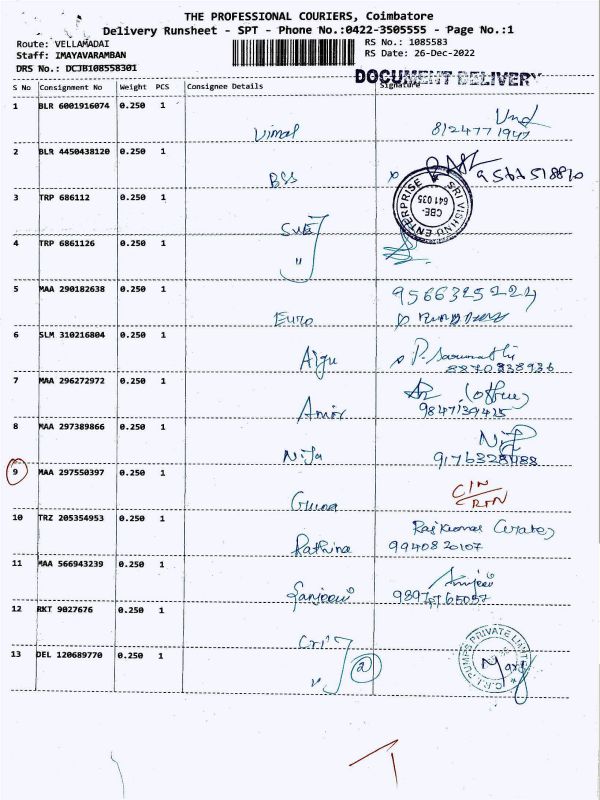 THE PROFESSIONAL COURIERS, Coimbatore
Delivery Runsheet - SPT - Phone No.:0422-3505555 - Page No.:1
Route: VELLAMADAI
RS No.: 1085583
Staff: IMAYAVARAMBAN
RS Date: 26-Dec-2022
DRS No.: DCJB108558301
DOCUMENT DELIVERY
S No Consignment No Weight PCS Consignee Details Signature
1 BLR 6001916074 0.250 1
Vimal 8124771947
2 BLR 4450438120 0.250 1
BSS
3 TRP 686112 0.250 1
SRI VISHNU ENTERPRISE
CBE-
641 035
4 TRP 6861126 0.250 1
"
5 MAA 290182638 0.250 1
9566325224
Euro
6 SLM 310216804 0.250 1
8870838936
7 MAA 296272972 0.250 1
(office)
Amor 9847139425
8 MAA 297389866 0.250 1
Nija 9176328488
9 MAA 297550397 0.250 1
CIN
RTN
Guna
10 TRZ 205354953 0.250 1
Rathina 9940820107
11 MAA 566943239 0.250 1
Sanjeevi
12 RKT 9027676 0.250 1
Cri
13 DEL 120689770 0.250 1
" 2
C.R.I. PUMPS PRIVATE LIMITED